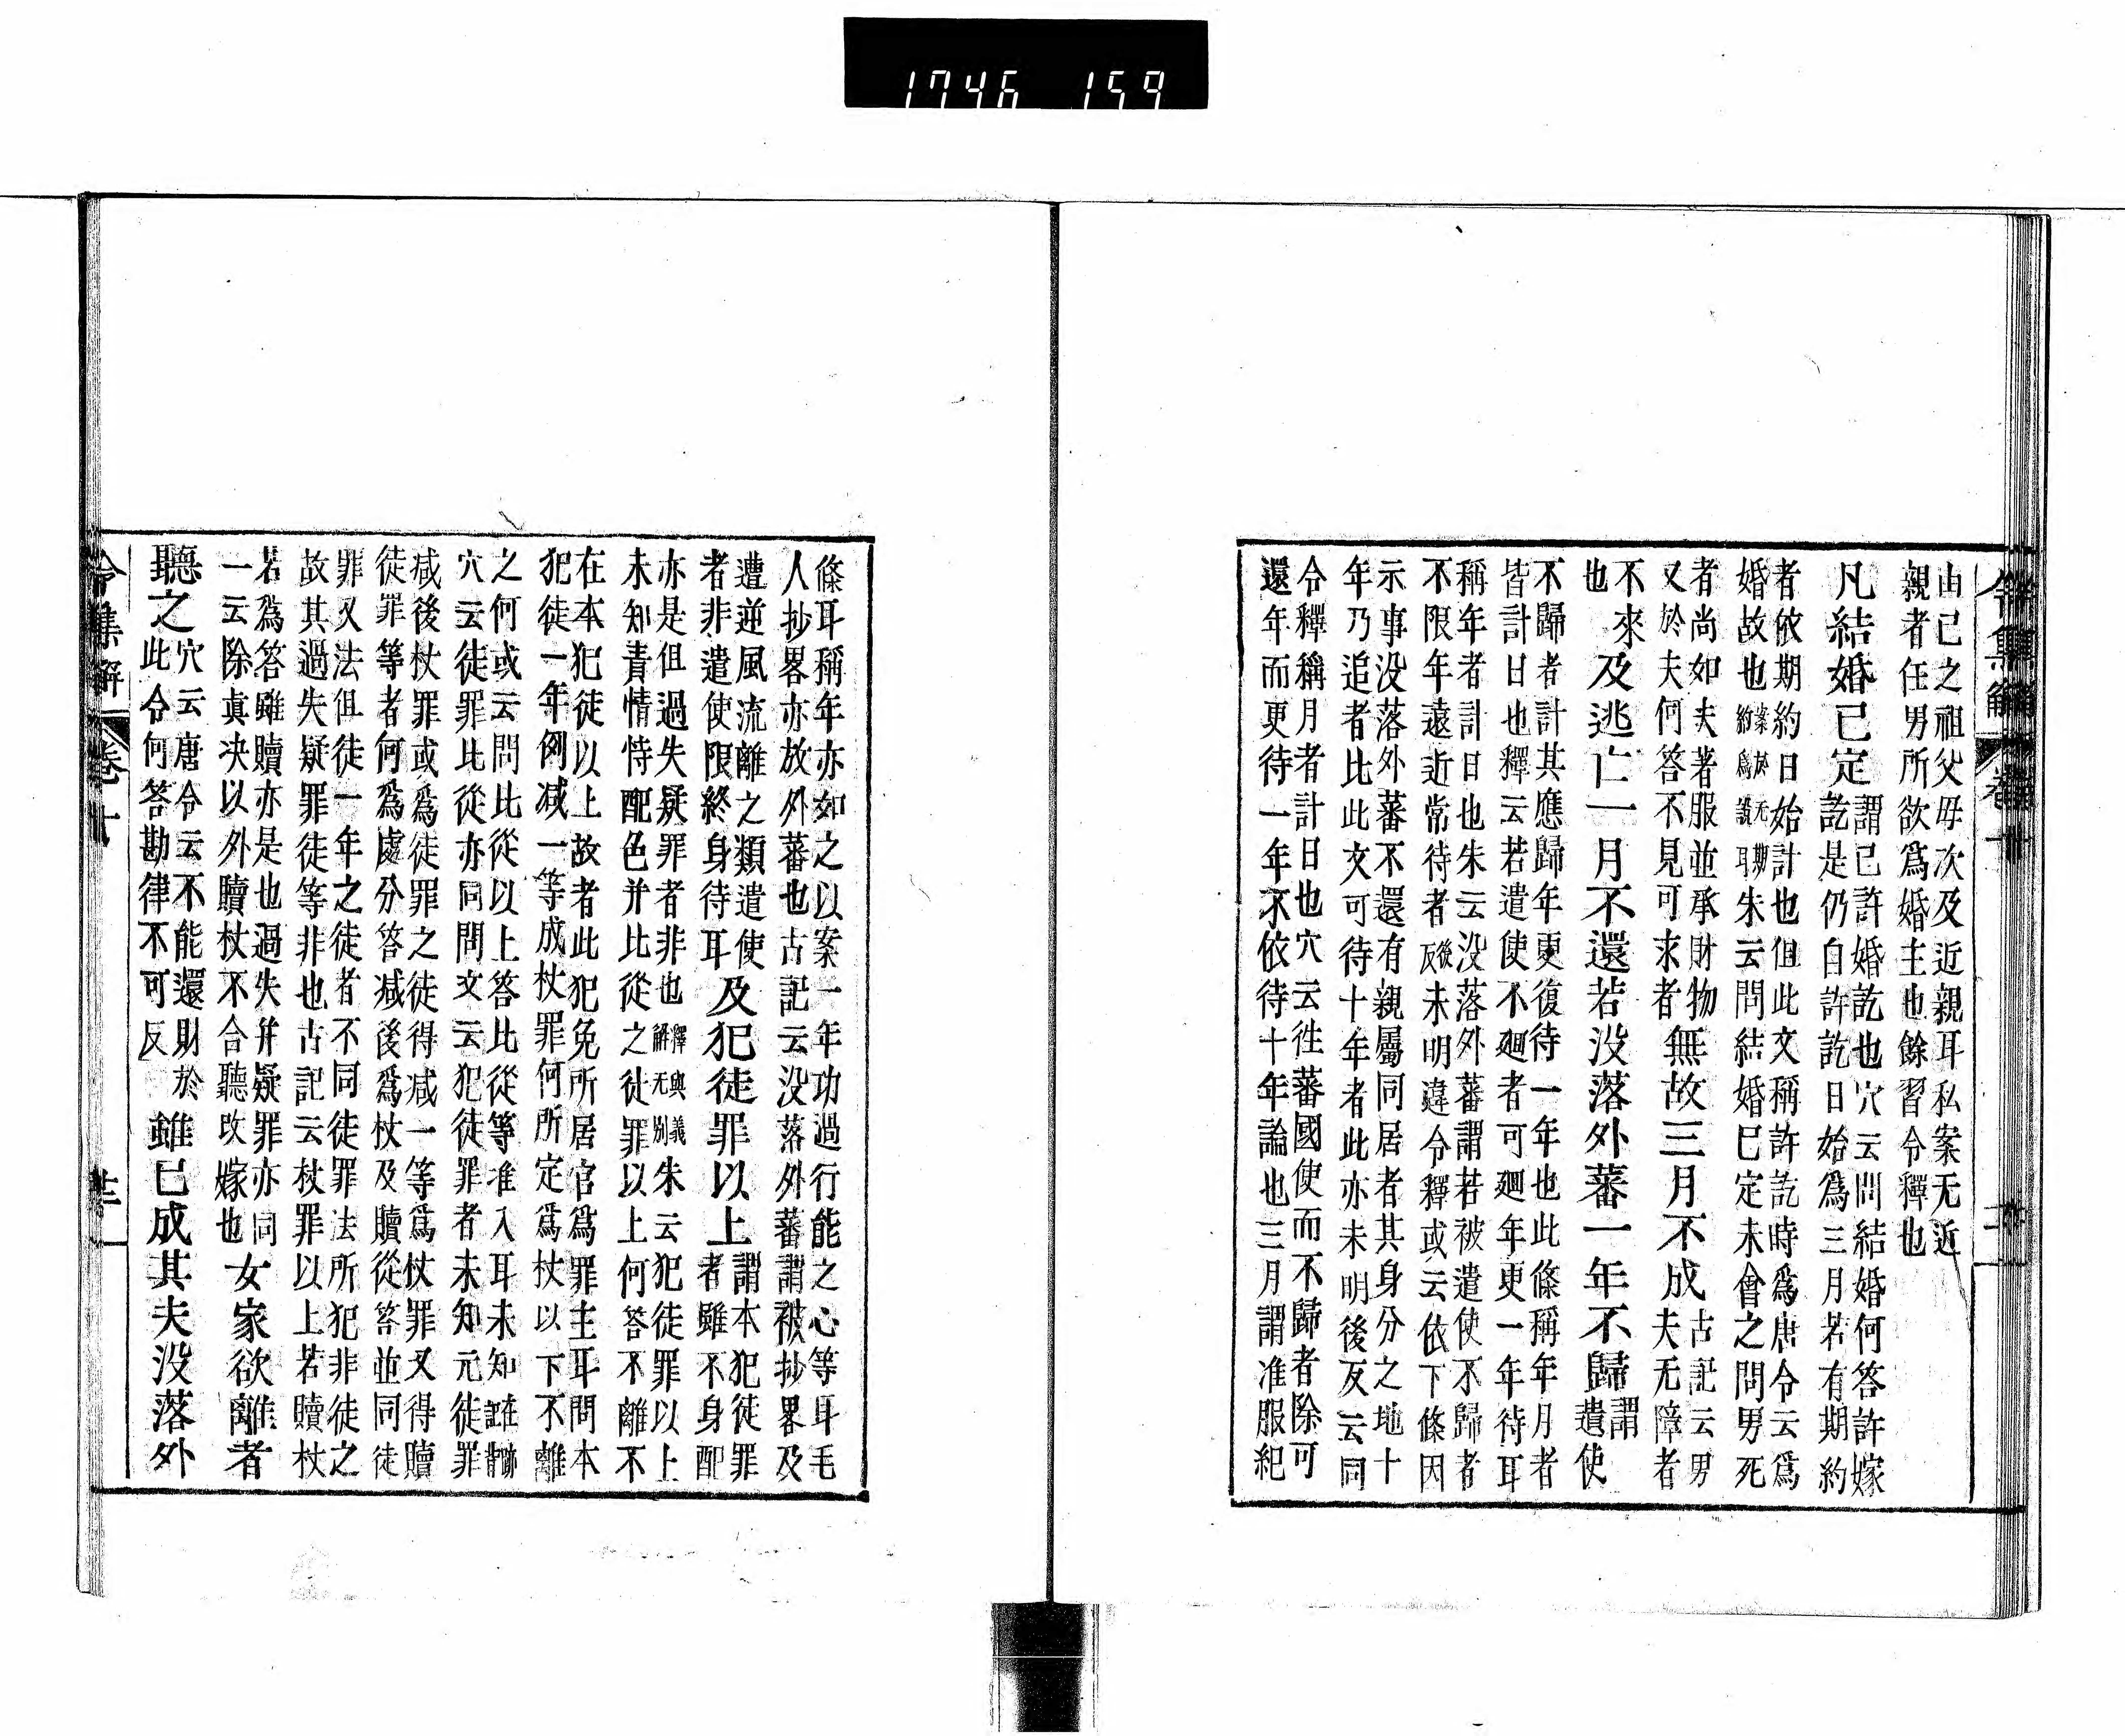 1746 159
令集解 卷十
由己之祖父毋次及近親耳私案无近
親者任男所欲爲婚主也餘習令釋也
凡結婚已定
謂已許婚訖也穴云問結婚何答許嫁
訖是仍自許訖日始爲三月若有期約
者依期約日始計也但此文稱許訖時爲唐令云爲
婚故也案於无期約爲議耳朱云問結婚已定未會之間男死
者尚如夫著服並承財物
又於夫何答不見可求者
無故三月不成
古記云男
夫无障者
不來
也
及逃亡一月不還若没落外蕃一年不歸
謂
遣使
不歸者計其應歸年更復待一年也此條稱年月者
皆計日也釋云若遣使不廻者可廻年更一年待耳
稱年者計日也朱云没落外蕃謂若被遣使不歸者
不限年遠近常待者後反未明違令釋或云依下條因
示事没落外蕃不還有親屬同居者其身分之地十
年乃追者比此文可待十年者此亦未明後反云同
令釋稱月者計日也穴云徃蕃國使而不歸者除可
還年而更待一年不依待十年論也三月謂准服紀
條耳稱年亦如之以案一年功過行能之心等耳毛
人抄畧亦放外蕃也古記云没落外蕃謂被抄畧及
遭逆風流離之類遣使
者非遣使限終身待耳
及犯徒罪以上
謂本犯徒罪
者雖不身配
亦是但過失疑罪者非也釋與義解无別朱云犯徒罪以上
未知責情恃配色并比從之徒罪以上何答不離不
在本犯徒以上故者此犯免所居官爲罪主耳問本
犯徒一年例减一等成杖罪何所定爲杖以下不離
之何或云問比從以上答比從等准入耳未知
穴云徒罪比從亦同問文云犯徒罪者未知元徒罪
减後杖罪或爲徒罪之徒得减一等爲杖罪又得贖
徒罪等者何爲處分答减後爲杖及贖從答並同徒
罪又法但徒一年之徒者不同徒罪法所犯非徒之
故其過失疑罪徒等非也古記云杖罪以上若贖杖
若爲答雖贖亦是也過失并疑罪亦同
一云除眞决以外贖杖不合聽改嫁也
女家欲離者
聽之
穴云唐令云不能還財於
此令何答勘律不可反
雖已成其夫没落外
令集解 卷十